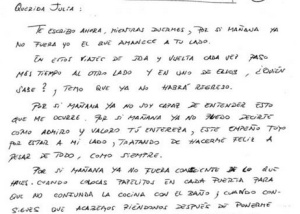 QUERIDA JULIA:
TE ESCRIBO AHORA, MIENTRAS DUERMES, POR SI MAÑANA YA
NO FUERA YO EL QUE AMANECE A TU LADO.
EN ESTOS VIAJES DE IDA Y VUELTA CADA VEZ PASO
MÁS TIEMPO AL OTRO LADO Y EN UNO DE ELLOS, ¿QUIÉN
SABE?, TEMO QUE YA NO HABRÁ REGRESO.
POR SI MAÑANA YA NO SOY CAPAZ DE ENTENDER ESTO
QUE ME OCURRE. POR SI MAÑANA YA NO PUEDO DECIRTE
CÓMO ADMIRO Y VALORO TU ENTEREZA, ESTE EMPEÑO TUYO
POR ESTAR A MI LADO, TRATANDO DE HACERME FELIZ A
PESAR DE TODO, COMO SIEMPRE.
POR SI MAÑANA YA NO FUERA CONSCIENTE DE LO QUE
HACES. CUANDO COLOCAS PAPELITOS EN CADA PUERTA PARA
QUE NO CONFUNDA LA COCINA CON EL BAÑO; CUANDO CON-
SIGUES QUE ACABEMOS RIÉNDONOS DESPUÉS DE PONERME